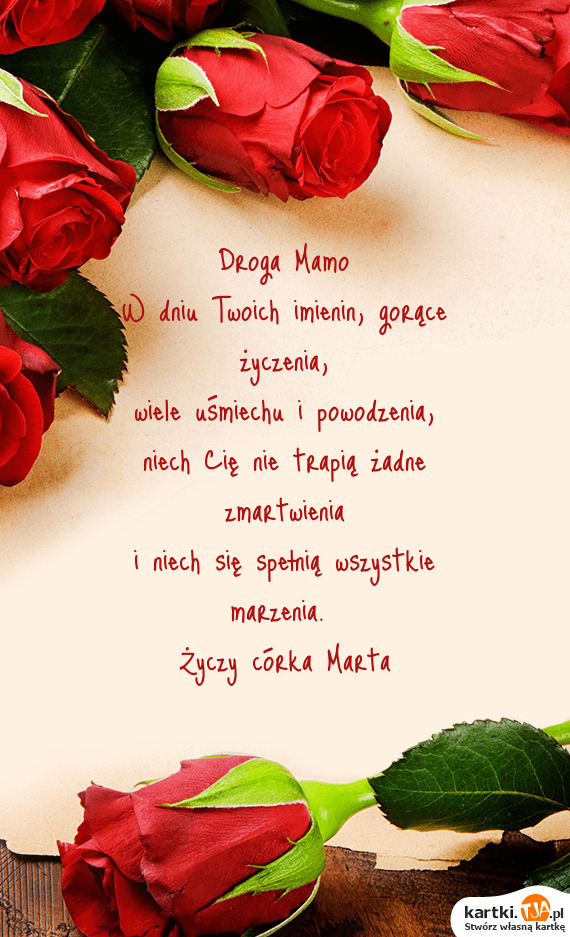 Droga Mamo
W dniu Twoich imienin, gorące
życzenia,
wiele uśmiechu i powodzenia,
niech Cię nie trapią żadne
zmartwienia
i niech się spełnią wszystkie
marzenia.
Życzy córka Marta
kartki.TJA.pl
Stwórz własną kartkę